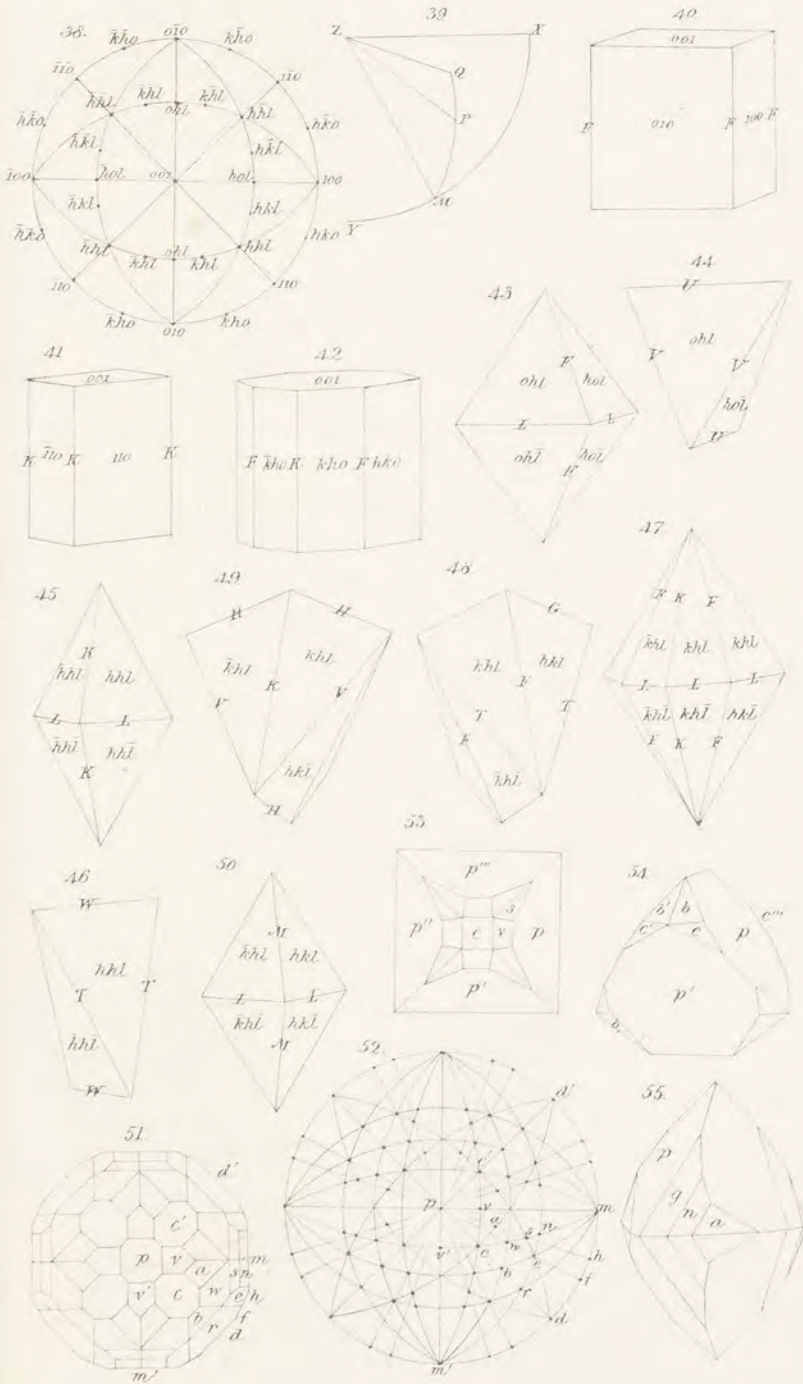 38.
k̄h̄o
oī̄o
kh̄o
ī̄ī̄o
1ī̄o
h̄k̄o
h̄h̄l
k̄h̄l
kh̄l
hh̄l
ohl
hk̄o
h̄k̄l
hk̄l
ī̄oo
h̄ol
001
hol
100
h̄kl
hkl
h̄ko
h̄hl
k̄hl
ohl
khl
hhl
hko
ī̄10
110
k̄ho
010
kho
39
Z
X
Q
P
M
Y
40.
001
F
010
F
100
F
41
001
K
ī̄10
K
110
K
42
001
F
k̄ho
K
kho
F
hko
43
F
ohl
hol
L
L
ohl̄
F
hol̄
44
U
ohl
V
V
hol̄
U
45
K
h̄hl
hhl
L
L
h̄hl̄
hhl̄
K
49
H
H
k̄hl
khl
V
K
V
hkl̄
H
48
G
k̄hl
hkl
F
T
T
F
k̄hl̄
47
F
K
F
k̄hl
khl
khl
L
L
L
k̄hl̄
khl̄
hkl̄
F
K
F
46
W
hhl
T
T
h̄hl̄
W
50
M
k̄hl
hkl
L
L
k̄hl̄
hkl̄
M
53
p'''
s
p''
c
v
p
p'
54
b'
b
c'
c
p
c'''
p'
b,
51
d'
c'
p
v
m
a
s
n
v'
c
w
e
h
b
f
r
d
m'
52.
d'
c'
p
v
m
a
s
n
v'
c
w
e
h
b
f
r
d
m'
55
p
g
n
a